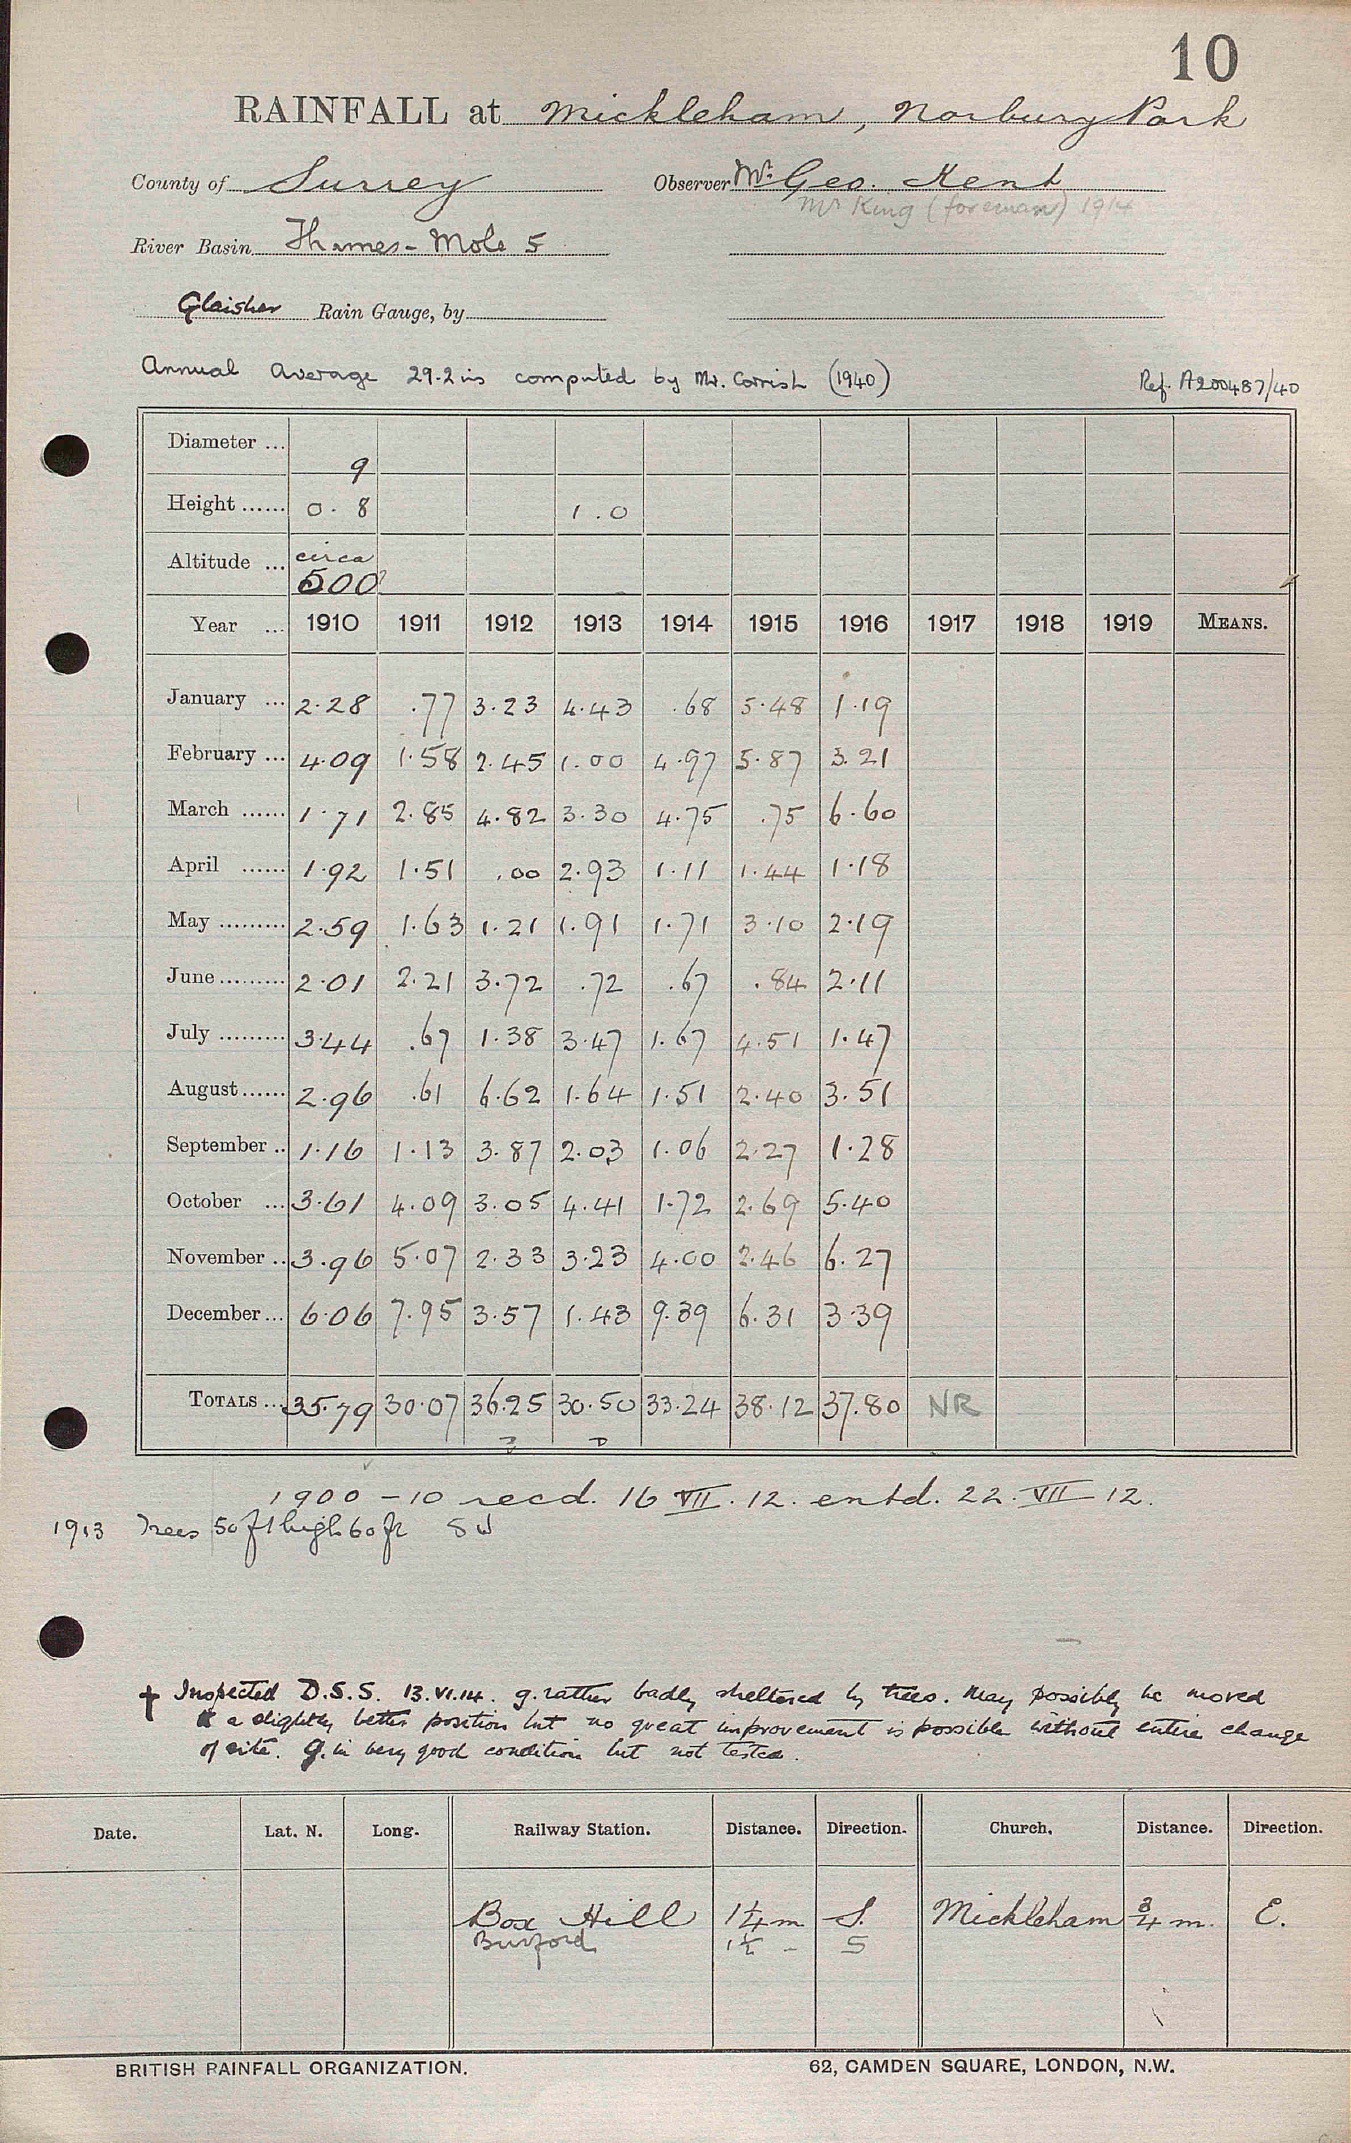 10
RAINFALL at Mickleham, Norbury Park
County of Surrey Observer Mr. Geo. Kent
Mr King (foreman) 1914
River Basin Thames - Mole 5
Glaisher Rain Gauge, by
Annual Average 29.2 ins computed by Mr. Cornish (1940) Ref. A200487/40
Diameter ... 9
Height ...... 0.8 1.0
Altitude ... circa 500?
Year ... 1910 1911 1912 1913 1914 1915 1916 1917 1918 1919 MEANS.
January ... 2.28 .77 3.23 4.43 .68 5.48 1.19
February ... 4.09 1.58 2.45 1.00 4.97 5.87 3.21
March ...... 1.71 2.85 4.82 3.30 4.75 .75 6.60
April ...... 1.92 1.51 .00 2.93 1.11 1.44 1.18
May ......... 2.59 1.63 1.21 1.91 1.71 3.10 2.19
June ......... 2.01 2.21 3.72 .72 .67 .84 2.11
July ......... 3.44 .67 1.38 3.47 1.67 4.51 1.47
August ...... 2.96 .61 6.62 1.64 1.51 2.40 3.51
September .. 1.16 1.13 3.87 2.03 1.06 2.27 1.28
October ... 3.61 4.09 3.05 4.41 1.72 2.69 5.40
November .. 3.96 5.07 2.33 3.23 4.00 2.46 6.27
December ... 6.06 7.95 3.57 1.43 9.39 6.31 3.39
TOTALS ... 35.79 30.07 36.25 30.50 33.24 38.12 37.80 NR
1900 - 10 recd. 16 VII. 12. entd. 22. VII 12.
1913 Trees 50 ft high 60 ft SW
† Inspected D.S.S. 13.VI.14. g. rather badly sheltered by trees. May possibly be moved
to a slightly better position but no great improvement is possible without entire change
of site. g. in very good condition but not tested.
Date. Lat. N. Long. Railway Station. Distance. Direction. Church. Distance. Direction.
Box Hill 1¼ m S. Mickleham ¾ m. E.
Burford 1½ - S
BRITISH RAINFALL ORGANIZATION. 62, CAMDEN SQUARE, LONDON, N.W.